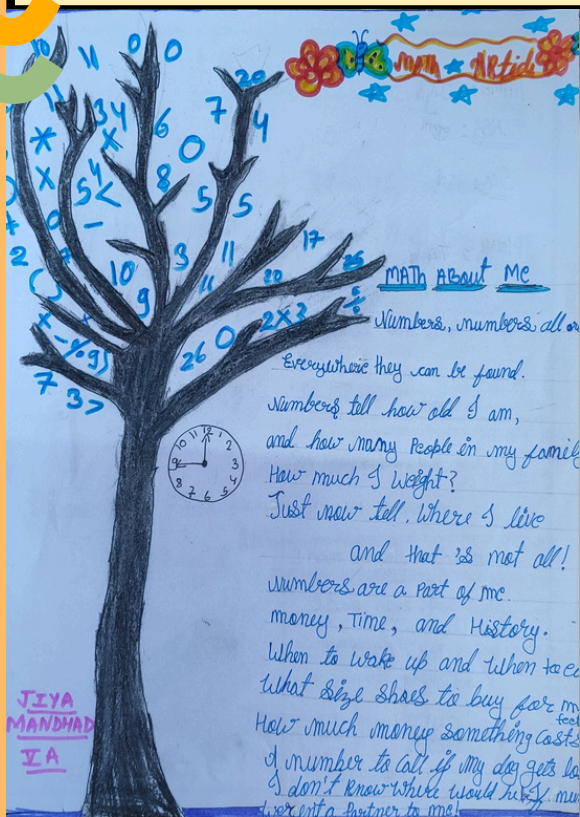 Math Article
10 11 0 0
11 34 6 7 20
* x 0 4
x 4 8
5 < 5 5
0 -
2 7 3 11 17
10 11 20 25
9
26 0 2x3
7
3 >
MATH About Me
Numbers, numbers all
Everywhere they can be found.
Numbers tell how old I am,
and how many People in my family
How much I weight?
Just now tell. Where I live
and that is not all!
Numbers are a part of me.
money, Time, and History.
When to wake up and when to
What size shoes to buy for
feet
How much money something costs
A number to call if my dog gets
I don't know where would be if
weren't a Partner to me!
12 1 2 3 4 5 6 7 8 9 10 11
JIYA
MANDHAD
V A